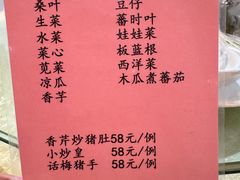 桑叶
生菜
水菜
菜心
苋菜
凉瓜
香芋
豆仔
蕃时叶
娃娃菜
板蓝根
西洋菜
木瓜煮蕃茄
香芹炒猪肚58元/例
小炒皇 58元/例
话梅猪手 58元/例